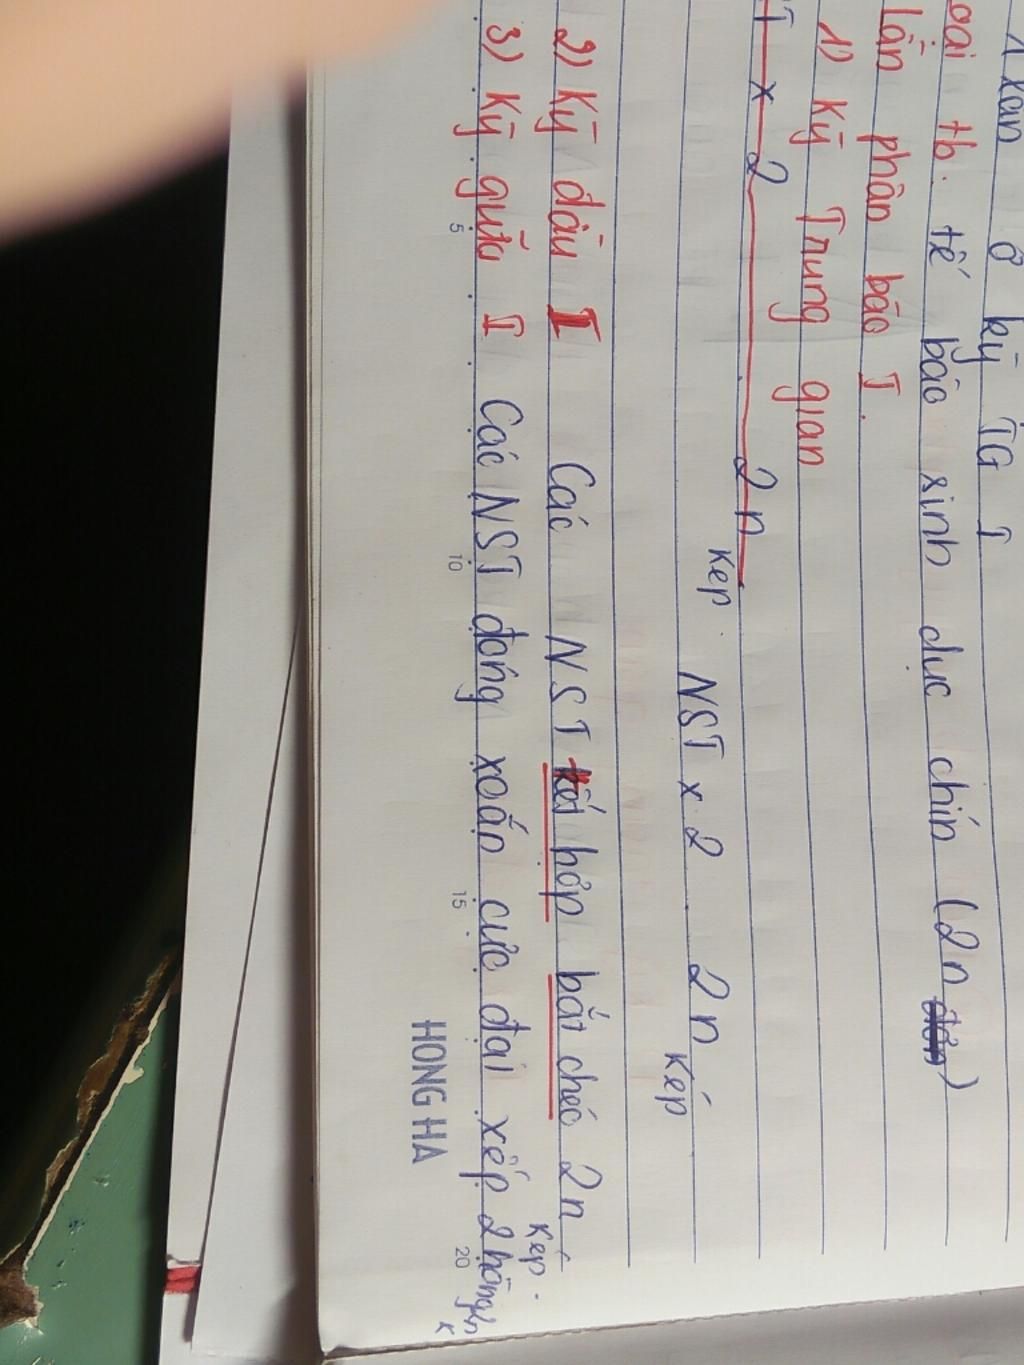 ở kỳ TG I
oại tb: tế bào sinh dục chín (2n)
lần phân bào I.
1) Kỳ Trung gian
T x 2 2n kép.
NST x 2 2n kép
2) Kỳ đầu I Các NST kết hợp bắt chéo 2n kép.
3) Kỳ giữa I Các NST đóng xoắn cực đại xếp 2 hàng
5 10 15 20
HONG HA